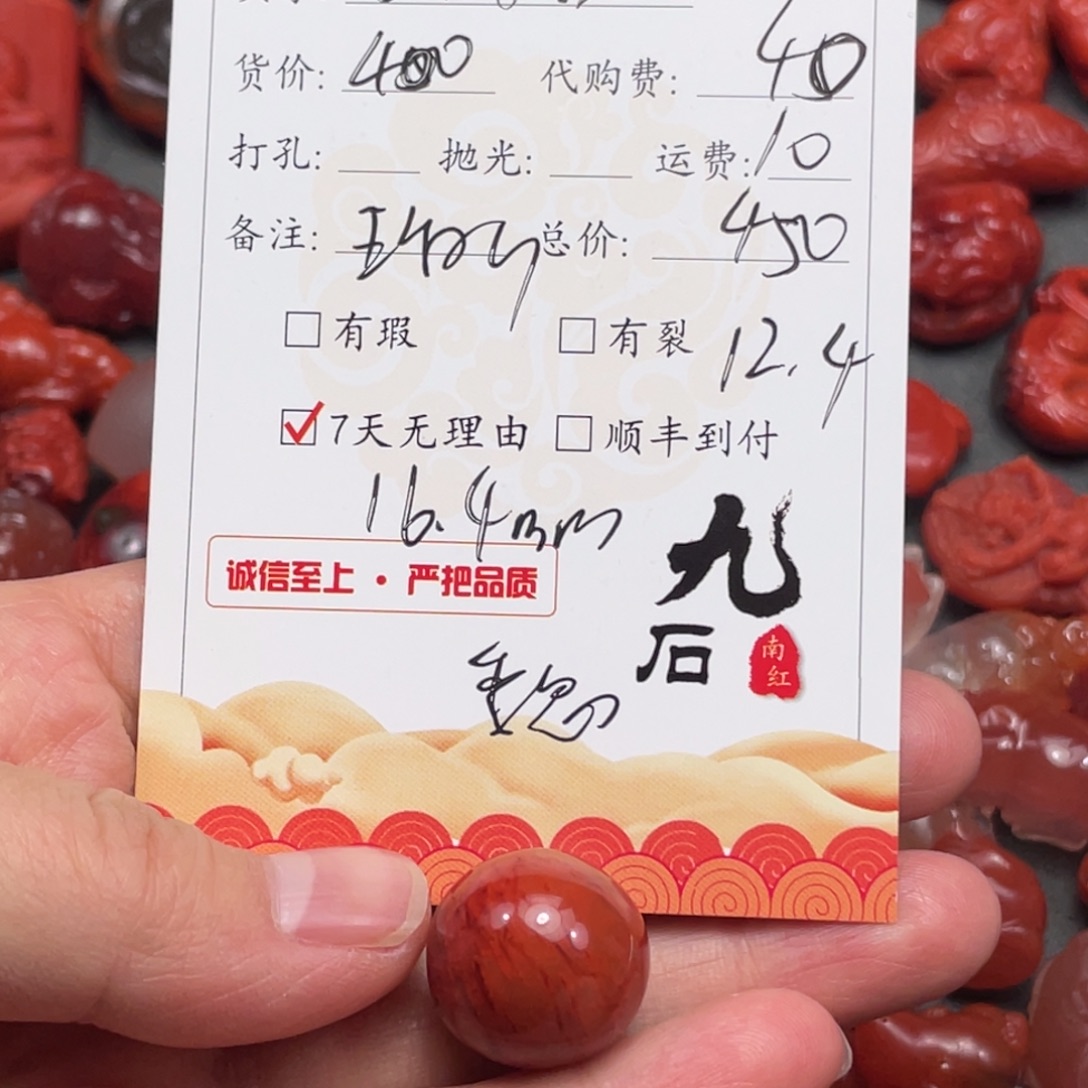 货价: 400 代购费: 40
打孔: 抛光: 运费: 10
备注: 总价: 450
有瑕 有裂 12.4
7天无理由 顺丰到付
16.4mm
诚信至上 · 严把品质
九
石
南
红